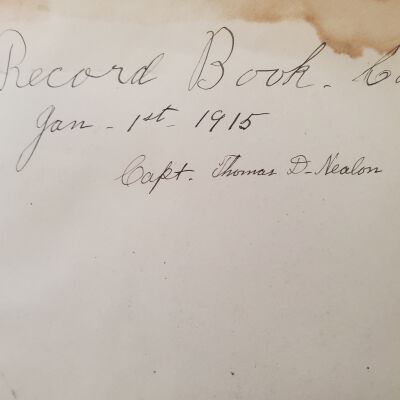 Record Book - Co
Jan - 1st - 1915
Capt. Thomas D - Nealon